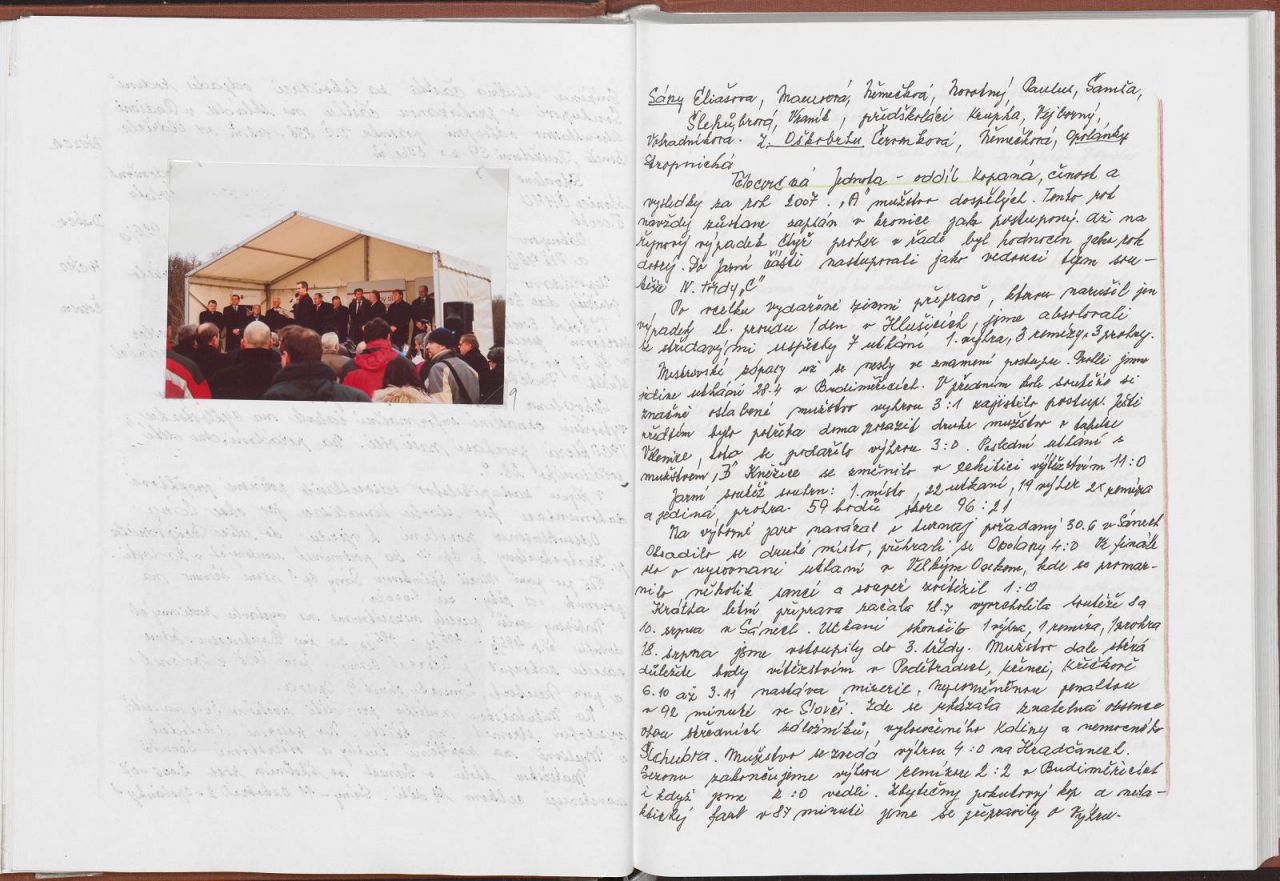 9
Sány Eliášova, Maurová, Němečková, Novotný Paulus, Šamša,
Šlehubrová, Vraník, předškoláci Krupka, Výborný,
Vohradníkova. Z Oškobrhu Čeromková, Němečková, Opolánky
Stropnická
Tělocvičná Jednota - oddíl kopaná, činost a
výsledky za rok 2007. "A" mužstvo dospělých. Tento rok
navždy zůstane zapsán v kronice jako postupový. Až na
říjnový výpadek čtyř proher v řadě byl hodnocen jako rok
dobrý. Do jarní části nastupovali jako vedoucí tým sou-
těže IV. třídy "C"
Po vcelku vydařené zimní přípravě, kterou narušil jen
výpadek el. proudu 1den v Hlušicích, jsme absolovali
se střídavými uspěchy 7 utkání 1. výhra, 3 remízy, 3 prohry.
Mistrovské zápasy už se nesly ve znamení postupu. Prohráli jsme
jedine utkání 28.4 v Budiměřicích. V předním kole soutěže si
značně oslabené mužstvo výhrou 3:1 zajistilo postup. Ještě
předtím bylo potřeba doma porazit druhé mužstvo v tabulce
Vlkenice, což se podařilo výhrou 3:0. Poslední utkání s
mužstvem "B" Kněžice se změnilo v exhibici vítězstvím 11:0
Jarní soutěž souhrn: 1. místo, 22 utkání, 19 výher 2x remíza
a jediná prohra. 59 bodů skore 96:21
Na výborné jaro navázal i turnaj pořádaný 30.6 v Sánech
Obsadilo se druhé místo, přehráli se Opolany 4:0 Ve finále
šlo o vyrovnané utkání s Velkým Osekem, kde se promar-
nilo několik šancí a soupeř zvítězil 1:0
Krátká letní příprava začala 18.7 vyvrcholila soutěží
10. srpna v Sánech. Utkání skončilo 1 výhra, 1 remíza, 1 prohra
18. srpna jsme vstoupily do 3. třídy. Mužstvo dále sbírá
důležité body vítězstvím v Poděbradech, Křinci, Křečkově
6.10 až 3.11 nastává mizerie. Neproměněnou penaltou
v 92 minutě ve Slovči. Zde se ukázala znatelná absence
obou středních záložníků, vyloučeného Kaliny a nemocného
Šlehubra. Mužstvo se zvedá výhrou 4:0 na Hradčanech.
Sezonu zakončujeme výhrou remízou 2:2 v Budiměřicích
i když jsme 2:0 vedli. Zbytečný pokutový kop a nešť-
astný faul v 87 minutě jsme se připravily o výhru.